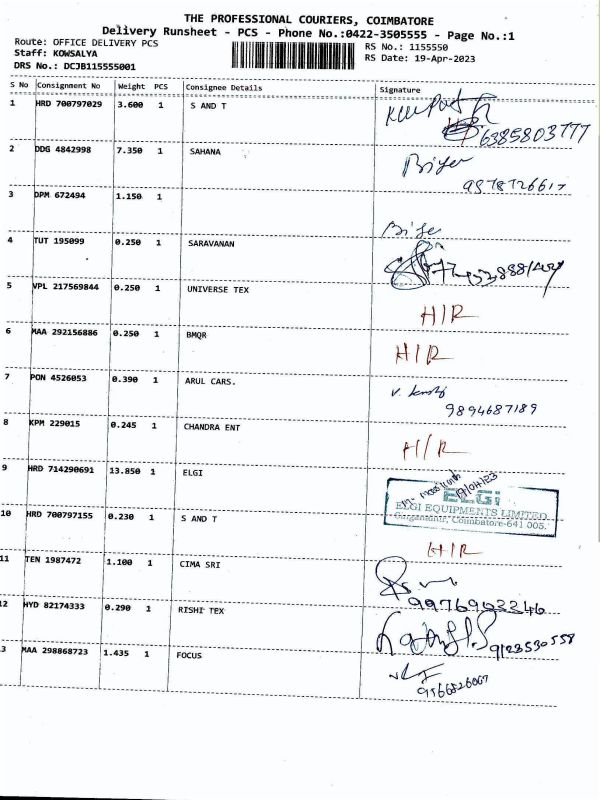 THE PROFESSIONAL COURIERS, COIMBATORE
Delivery Runsheet - PCS - Phone No.:0422-3505555 - Page No.:1
Route: OFFICE DELIVERY PCS
Staff: KOWSALYA
DRS No.: DCJB115555001
RS No.: 1155550
RS Date: 19-Apr-2023
S No Consignment No Weight PCS Consignee Details Signature
1 HRD 700797029 3.600 1 S AND T
6385803777
2 DDG 4842998 7.350 1 SAHANA
3 DPM 672494 1.150 1
4 TUT 195099 0.250 1 SARAVANAN
5 VPL 217569844 0.250 1 UNIVERSE TEX H/R
6 MAA 292156886 0.250 1 BMQR H/R
7 PON 4526053 0.390 1 ARUL CARS.
9894687189
8 KPM 229015 0.245 1 CHANDRA ENT H/R
9 HRD 714290691 13.850 1 ELGI
19/04/23
ELGi
ELGI EQUIPMENTS LIMITED
Coimbatore-641 005.
10 HRD 700797155 0.230 1 S AND T H/R
11 TEN 1987472 1.100 1 CIMA SRI
12 HYD 82174333 0.290 1 RISHI TEX
9123530558
3 MAA 298868723 1.435 1 FOCUS